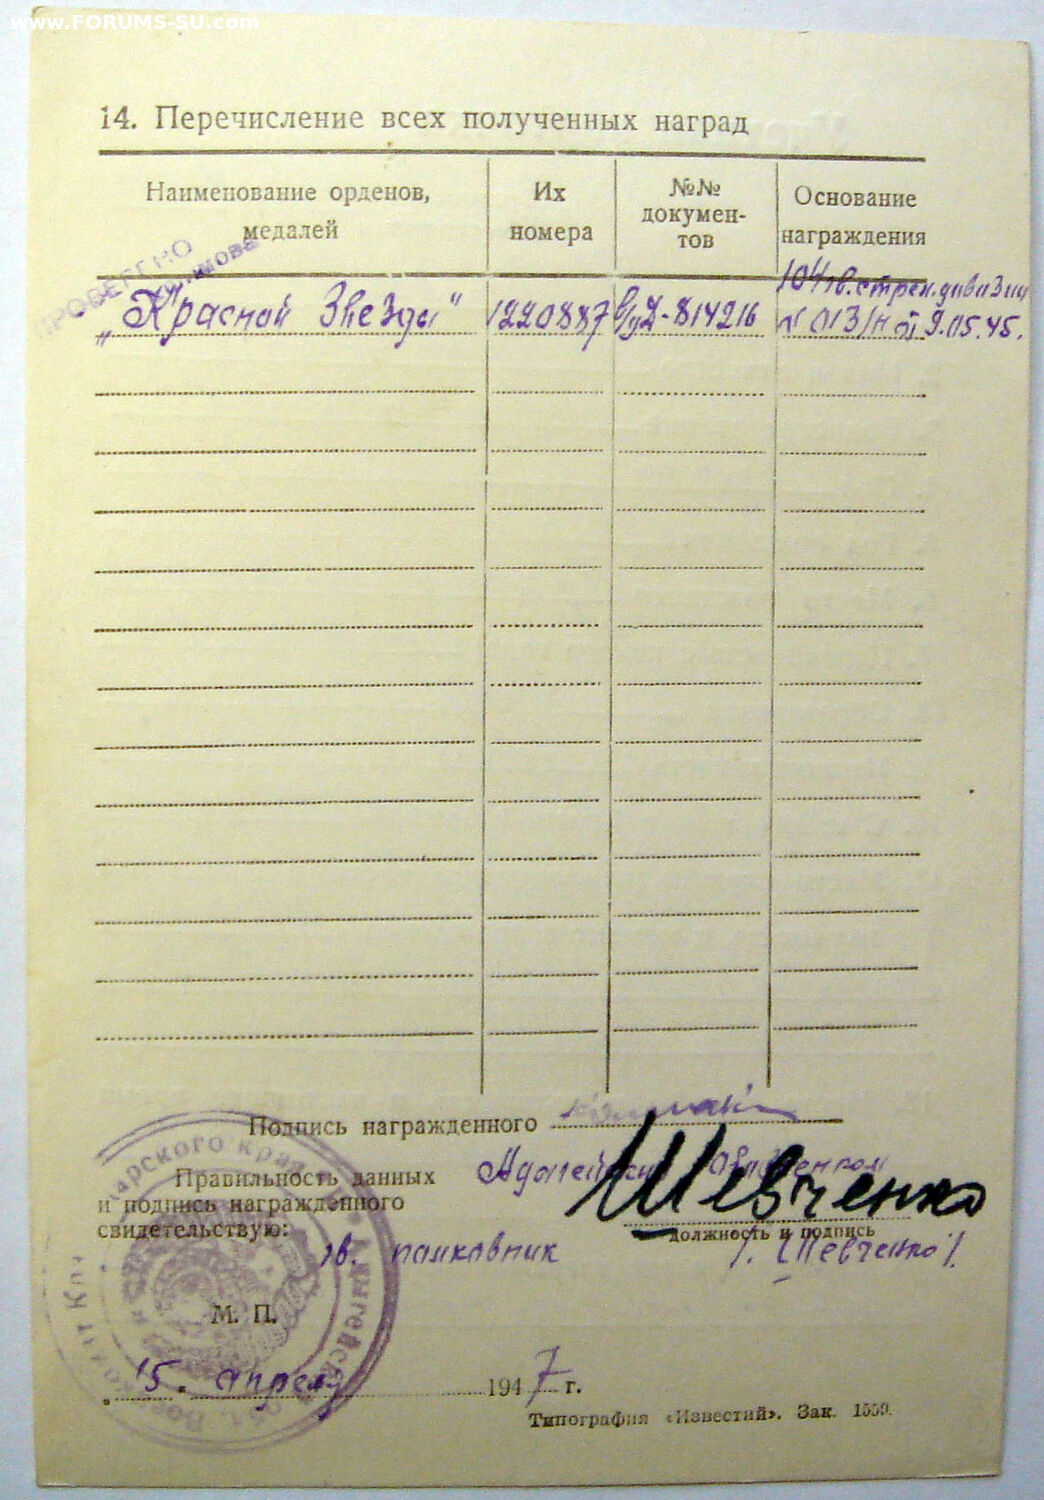 www.FORUMS-SU.com
14. Перечисление всех полученных наград
Наименование орденов, медалей
Их номера
№№ докумен- тов
Основание награждения
ПРОВЕРЕНО
„Красной Звезды" 1220887 в/уд-814216 104 гв. стрел. дивизии № 013/н от 9.05.45.
Подпись награжденного
Правильность данных
и подпись награжденного
свидетельствую:
Шевченко
Должность и подпись
гв. полковник /. Шевченко /.
М. П.
„15" апреля 1947 г.
Типография «Известий». Зак. 1559.